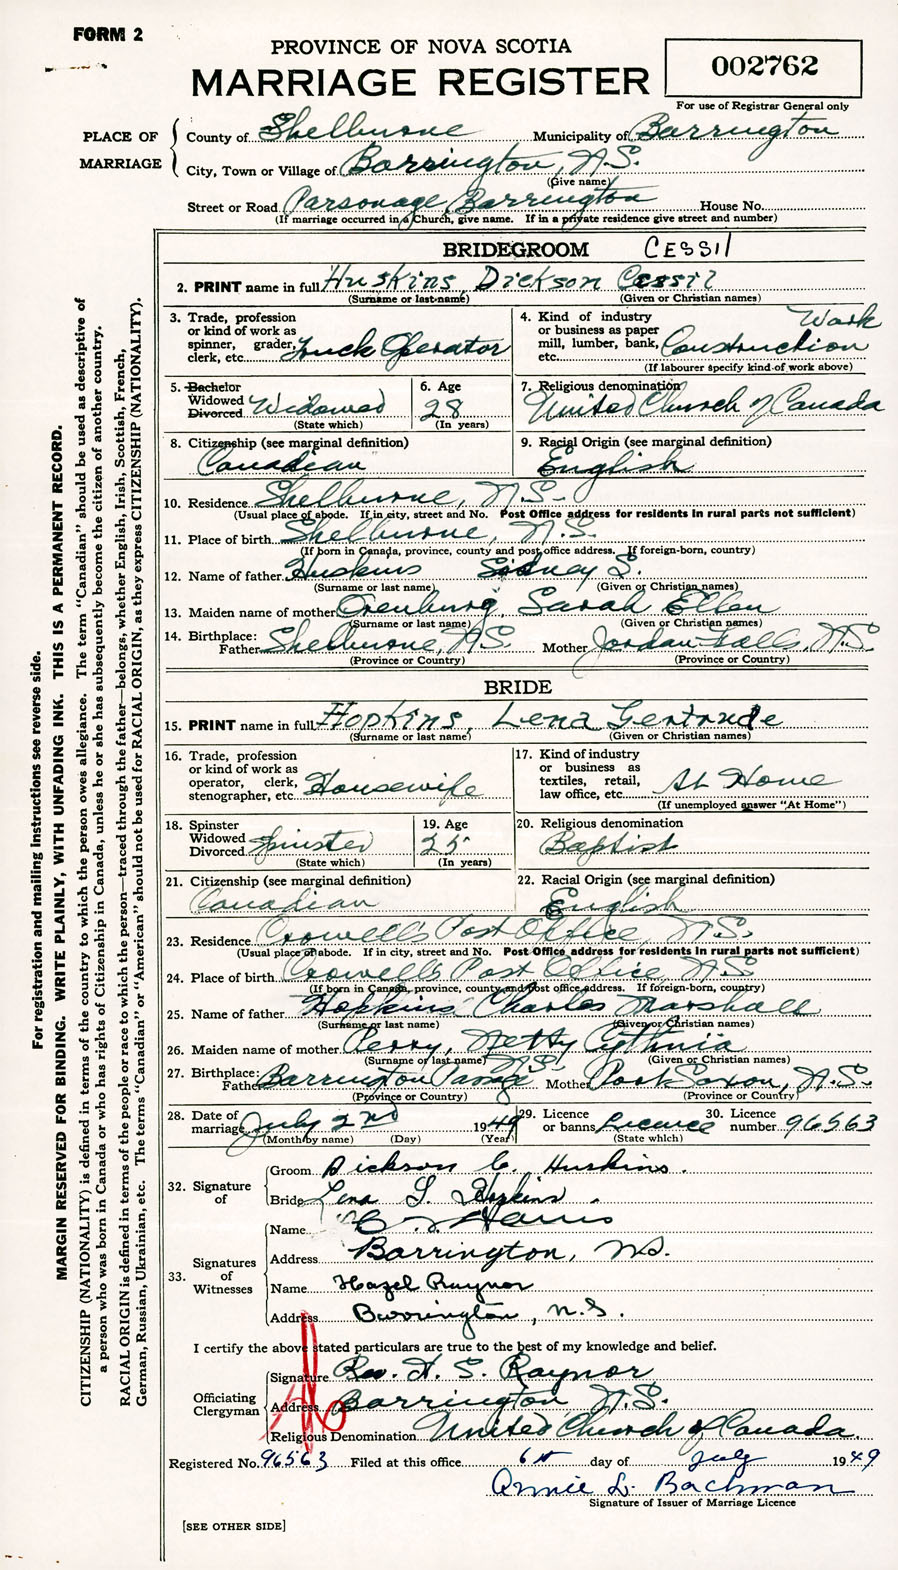 FORM 2
PROVINCE OF NOVA SCOTIA
MARRIAGE REGISTER
002762
For use of Registrar General only
PLACE OF MARRIAGE
County of Shelburne Municipality of Barrington
City, Town or Village of Barrington, N.S.
(Give name)
Street or Road Parsonage, Barrington House No.
(If marriage occurred in a Church, give name. If in a private residence give street and number)
BRIDEGROOM CESSIl
2. PRINT name in full Huskins, Dickson Cessil
(Surname or last name) (Given or Christian names)
3. Trade, profession or kind of work as spinner, grader, clerk, etc. Truck Operator
4. Kind of industry or business as paper mill, lumber, bank, etc. Construction Work
(If labourer specify kind of work above)
5. Bachelor Widowed Divorced Widowed
(State which)
6. Age 28
(In years)
7. Religious denomination
United Church of Canada
8. Citizenship (see marginal definition)
Canadian
9. Racial Origin (see marginal definition)
English
10. Residence Shelburne, N.S.
(Usual place of abode. If in city, street and No. Post Office address for residents in rural parts not sufficient)
11. Place of birth Shelburne, N.S.
(If born in Canada, province, county and post office address. If foreign-born, country)
12. Name of father Huskins Sidney S.
(Surname or last name) (Given or Christian names)
13. Maiden name of mother Oxenburg, Sarah Ellen
(Surname or last name) (Given or Christian names)
14. Birthplace: Father Shelburne, N.S. Mother Jordan Falls, N.S.
(Province or Country) (Province or Country)
BRIDE
15. PRINT name in full Hopkins, Lena Gertrude
(Surname or last name) (Given or Christian names)
16. Trade, profession or kind of work as operator, clerk, stenographer, etc. Housewife
17. Kind of industry or business as textiles, retail, law office, etc. At Home
(If unemployed answer "At Home")
18. Spinster Widowed Divorced Spinster
(State which)
19. Age 25
(In years)
20. Religious denomination
Baptist
21. Citizenship (see marginal definition)
Canadian
22. Racial Origin (see marginal definition)
English
23. Residence Crowells Post Office, N.S.
(Usual place of abode. If in city, street and No. Post Office address for residents in rural parts not sufficient)
24. Place of birth Crowells Post Office N.S.
(If born in Canada, province, county and post office address. If foreign-born, country)
25. Name of father Hopkins Charles Marshall
(Surname or last name) (Given or Christian names)
26. Maiden name of mother Perry, Netty Cythnia
(Surname or last name) (Given or Christian names)
27. Birthplace: Father Barrington Passage N.S. Mother Port Saxon, N.S.
(Province or Country) (Province or Country)
28. Date of marriage July 2nd 1949
(Month by name) (Day) (Year)
29. Licence or banns Licence
(State which)
30. Licence number 96563
32. Signature of
Groom Dickson C. Huskins.
Bride Lena G. Hopkins.
33. Signatures of Witnesses
Name Harris
Address Barrington, N.S.
Name Hazel Raynor
Address Barrington, N.S.
I certify the above stated particulars are true to the best of my knowledge and belief.
Officiating Clergyman
Signature Rev. H. S. Raynor
Address Barrington N.S.
Religious Denomination United Church of Canada.
Registered No. 96563 Filed at this office 6th day of July 1949
Annie L. Bachman
Signature of Issuer of Marriage Licence
[SEE OTHER SIDE]
For registration and mailing instructions see reverse side.
MARGIN RESERVED FOR BINDING. WRITE PLAINLY, WITH UNFADING INK. THIS IS A PERMANENT RECORD.
CITIZENSHIP (NATIONALITY) is defined in terms of the country to which the person owes allegiance. The term "Canadian" should be used as descriptive of
a person who was born in Canada or who has rights of Citizenship in Canada, unless he or she has subsequently become the citizen of another country.
RACIAL ORIGIN is defined in terms of the people or race to which the person—traced through the father—belongs, whether English, Irish, Scottish, French,
German, Russian, Ukrainian, etc. The terms "Canadian" or "American" should not be used for RACIAL ORIGIN, as they express CITIZENSHIP (NATIONALITY).